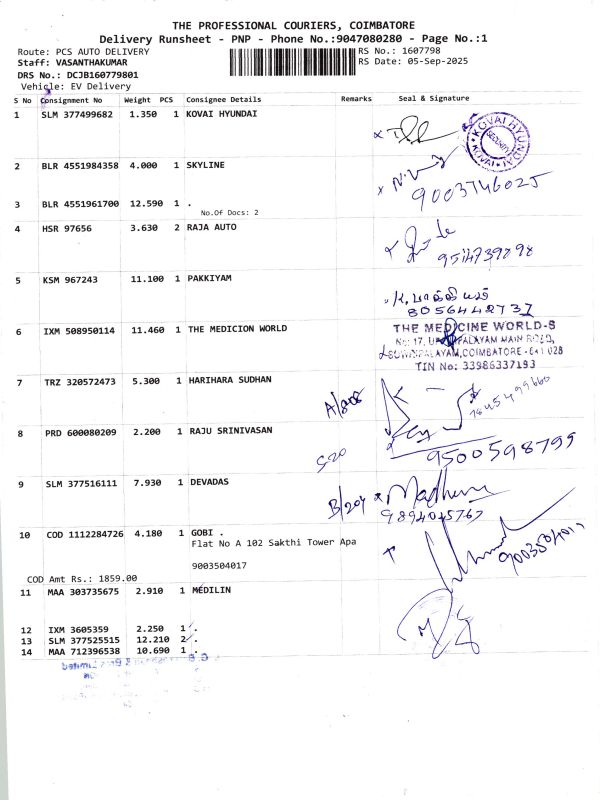 THE PROFESSIONAL COURIERS, COIMBATORE
Delivery Runsheet - PNP - Phone No.:9047080280 - Page No.:1
Route: PCS AUTO DELIVERY RS No.: 1607798
Staff: VASANTHAKUMAR RS Date: 05-Sep-2025
DRS No.: DCJB160779801
Vehicle: EV Delivery
S No Consignment No Weight PCS Consignee Details Remarks Seal & Signature
1 SLM 377499682 1.350 1 KOVAI HYUNDAI
KOVAI HYUNDAI
KOVAI
2 BLR 4551984358 4.000 1 SKYLINE
9003746025
3 BLR 4551961700 12.590 1 .
No.Of Docs: 2
4 HSR 97656 3.630 2 RAJA AUTO
9514739898
5 KSM 967243 11.100 1 PAKKIYAM
8056442737
6 IXM 508950114 11.460 1 THE MEDICION WORLD
THE MEDICINE WORLD-S
No: 17, PALAYAM MAIN ROAD,
COIMBATORE - 641 028
TIN No: 33986337193
7 TRZ 320572473 5.300 1 HARIHARA SUDHAN
8 PRD 600080209 2.200 1 RAJU SRINIVASAN
9500598799
9 SLM 377516111 7.930 1 DEVADAS
B/204
9894045767
10 COD 1112284726 4.180 1 GOBI .
Flat No A 102 Sakthi Tower Apa
9003504017
9003504017
COD Amt Rs.: 1859.00
11 MAA 303735675 2.910 1 MEDILIN
12 IXM 3605359 2.250 1 .
13 SLM 377525515 12.210 2 .
14 MAA 712396538 10.690 1 .